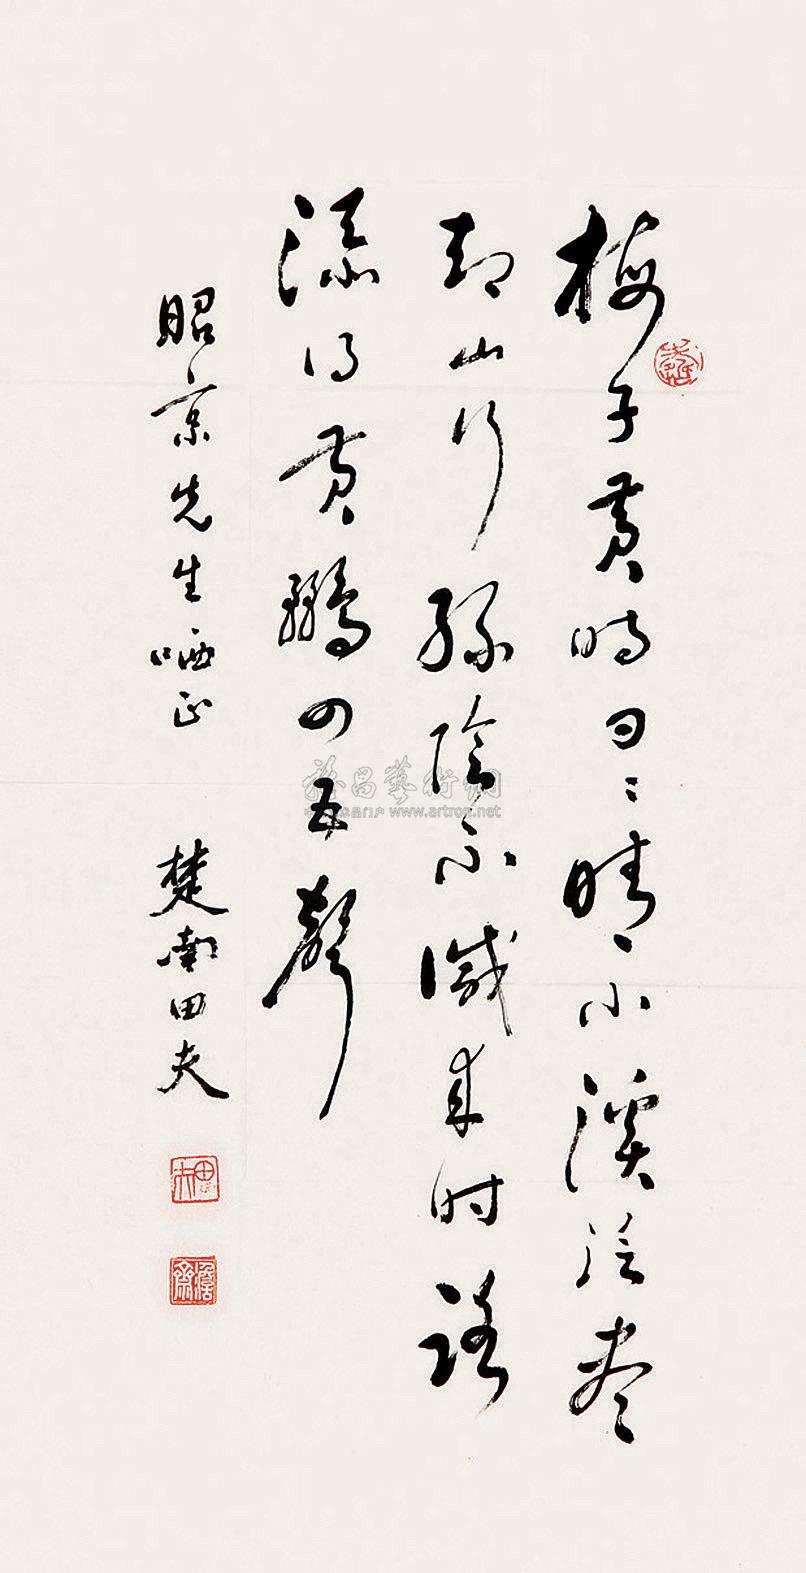 梅子黄時日〻晴小溪泛盡
却山行緑陰不減来时路
添得黄鸝四五聲
昭京先生哂正
楚南田夫
雅昌藝術網
www.artron.net